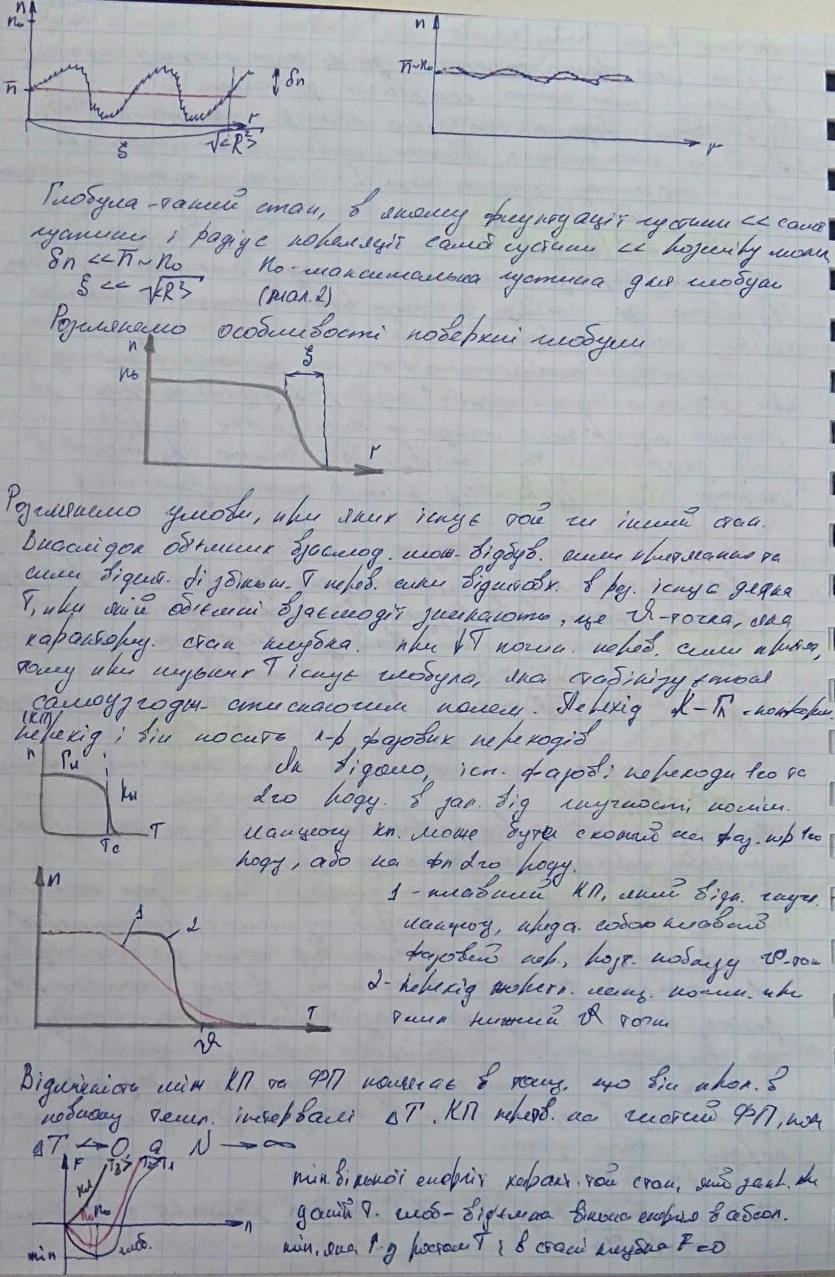 n
n₀
n̄
δn
r
ξ
√<R²>
n
n̄~n₀
r
Глобула - такий стан, в якому флуктуації густини << самої
густини і радіус кореляції самої густини << розміру
δn << n̄ ~ n₀ n₀ - максимальна густина для глобули
ξ << √<R²> (мал.2)
Розглянемо особливості поверхні глобули
n
n₀
ξ
r
Розглянемо умови, при яких існує той чи інший стан.
Внаслідок об'ємних взаємод. мож. відбув. сили притягання та
сили відшт. Зі збільш. T перев. сили відштовх. в рез. існує деяка
T, при якій об'ємні взаємодії зникають, це ϑ-точка, яка
характериз. стан клубка. При ↓T почин. перев. сили притяг,
тому при низьких T існує глобула, яка стабілізується
самоузгодж. стискаючим полем. Перехід К-Г
(КП)
перехід і він носить х-р фазових переходів
n
Гл
Кл
Tc
T
Як відомо, існ. фазові переходи 1го та
2го роду. В зал. від гнучкості полім.
ланцюгу кп. може бути схожий на фаз. пер 1го
роду, або на фп 2го роду.
n
1
2
T
ϑ
1 - плавний КП, який відп. гнучк.
ланцюгу, предст. собою плавний
фазовий пер, розт. поблизу ϑ-точ
2 - перехід жорстк. ланц. почин. при
темп нижчій ϑ точ
Відмінність між КП та ФП полягає в тому, що він прох. в
певному темп. інтервалі ΔT. КП перетв. на чистий ФП,
ΔT → 0, а N → ∞
F
Кл
T₃>
T₂>T₁
n₀
n₀
n
min
глоб.
min вільної енергії характ. той стан, який
даній T. глоб - від'ємна вільна енергія в абсол.
min, яка ↑ з ростом T і в стані клубка F=0